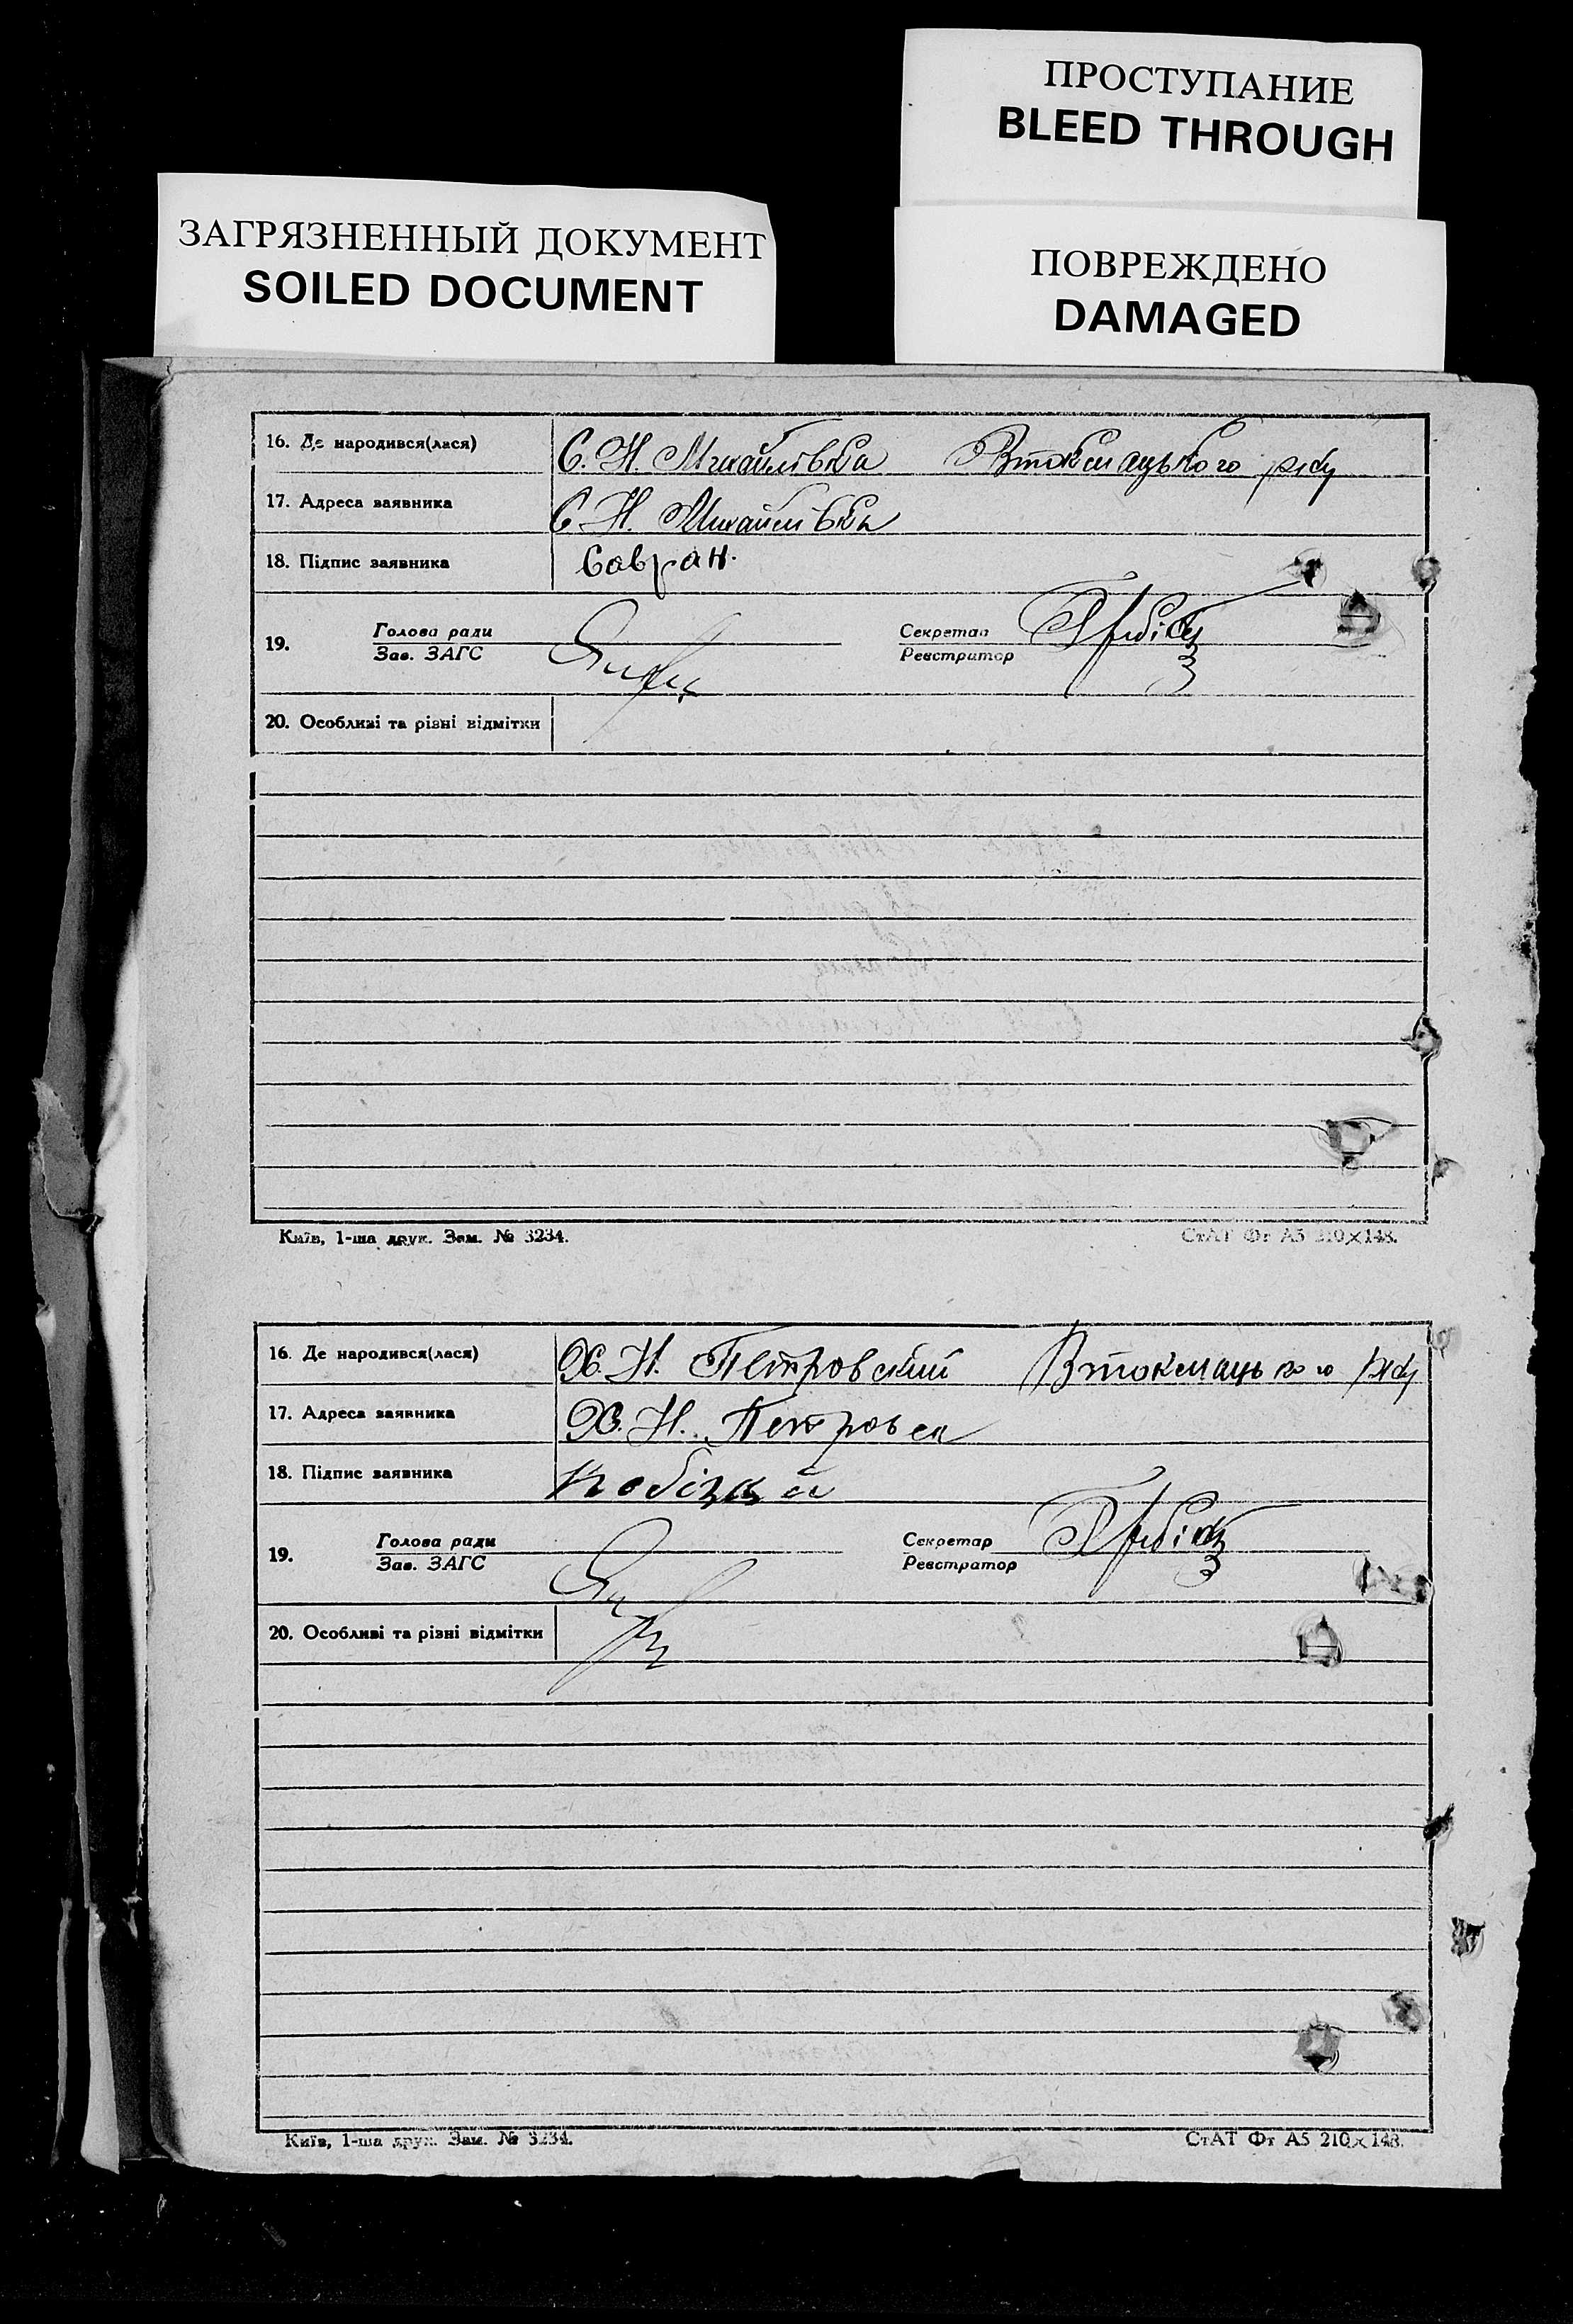 ПРОСТУПАНИЕ
BLEED THROUGH
ЗАГРЯЗНЕННЫЙ ДОКУМЕНТ
SOILED DOCUMENT
ПОВРЕЖДЕНО
DAMAGED
16. Де народився(лася) С. Н. Михайлівка Втокмацького р-ну
17. Адреса заявника С. Н. Михайлівка
18. Підпис заявника Савран.
19. Голова ради Секретар
Зав. ЗАГС Реєстратор
20. Особливі та різні відмітки
Київ, 1-ша друк. Зам. № 3234. СтАТ Фт А5 210×148.
16. Де народився(лася) Х. Н. Петровский Втокмацького р-ну
17. Адреса заявника Х. Н. Петровск
18. Підпис заявника
19. Голова ради Секретар
Зав. ЗАГС Реєстратор
20. Особливі та різні відмітки
Київ, 1-ша друк. Зам. № 3234. СтАТ Фт А5 210×148.